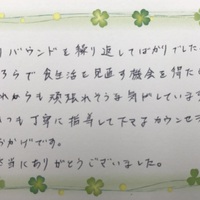 リバウンドを繰り返してばかりでした。
ちらで食生活を見直す機会を得た
れからも頑張れそうな気がしています
つも丁寧に指導して下さるカウンセラ
おかげです。
当にありがとうございました。